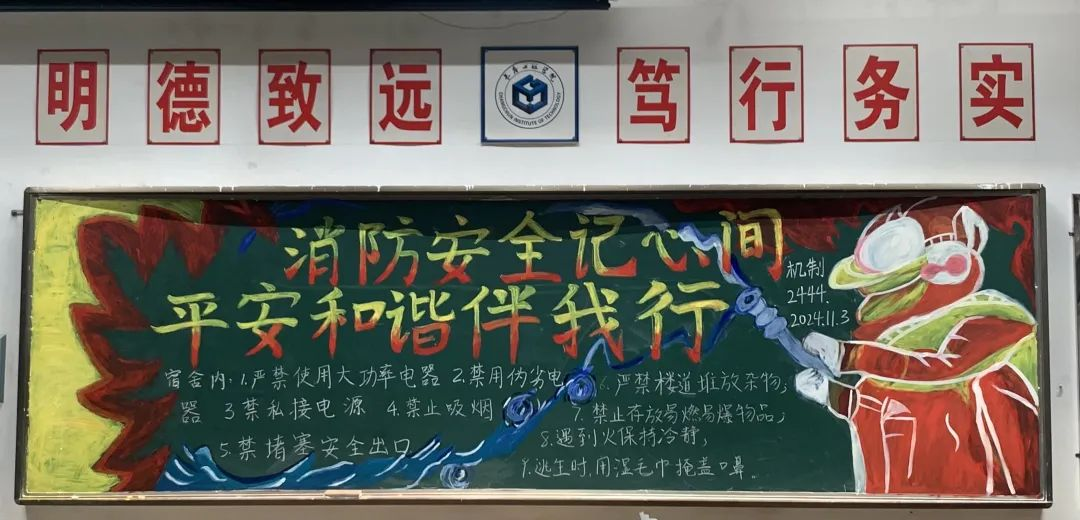 明 德 致 远 笃 行 务 实
CHANGCHUN INSTITUTE OF TECHNOLOGY
消防安全记心间
平安和谐伴我行
机制
2444.
2024.11.3
宿舍内:1.严禁使用大功率电器 2.禁用伪劣电
器 3禁私接电源 4.禁止吸烟
5.禁堵塞安全出口
6.严禁楼道堆放杂物;
7.禁止存放易燃易爆物品;
8.遇到火保持冷静;
9.逃生时,用湿毛巾掩盖口鼻。